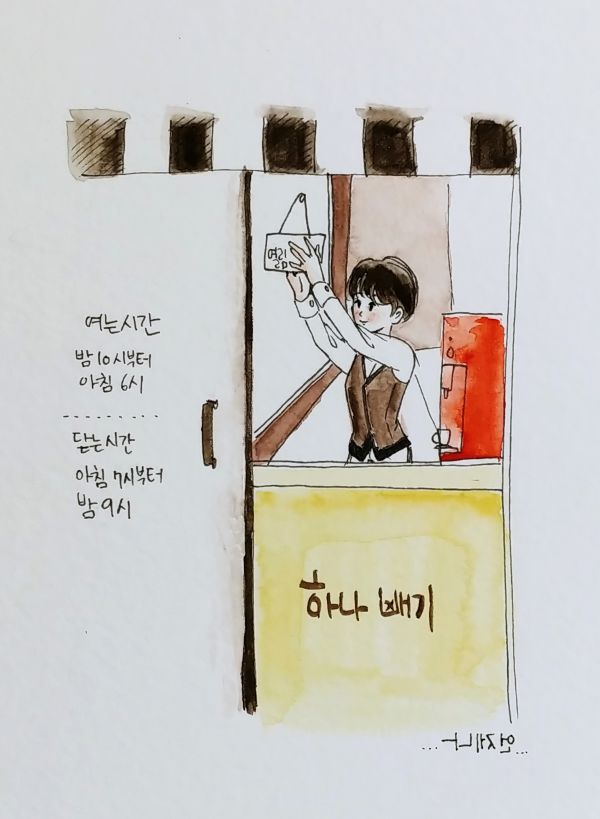 열림
여는시간
밤 10시부터
아침 6시
닫는시간
아침 7시부터
밤 9시
하나 빼기